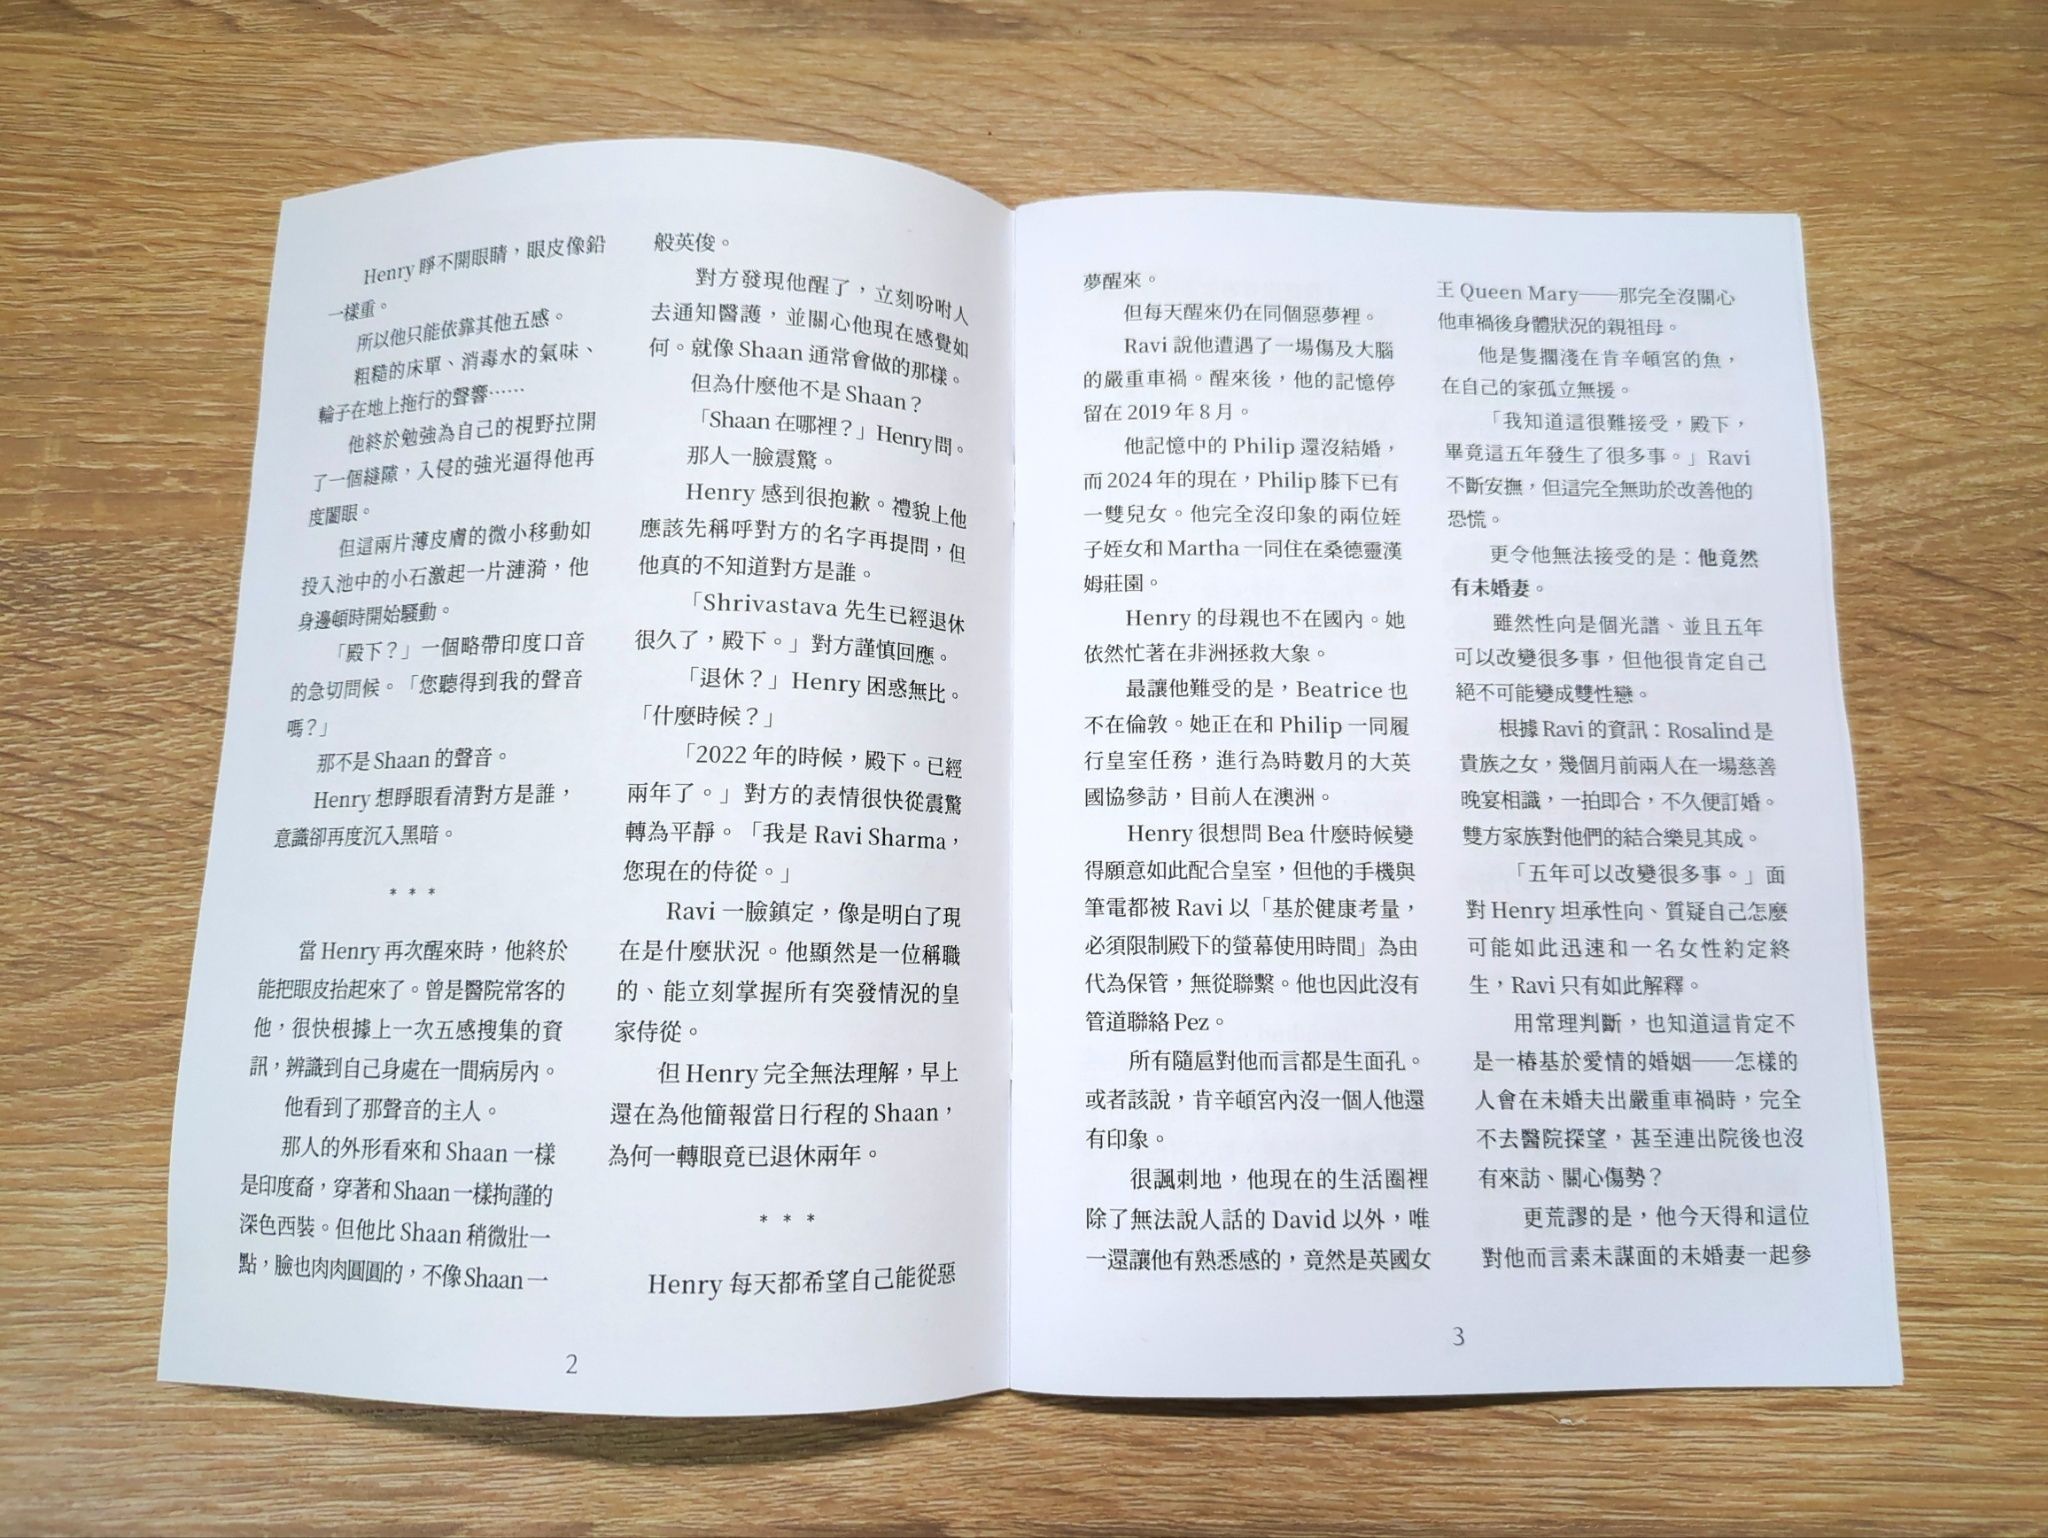 Henry 睜不開眼睛，眼皮像鉛
一樣重。
所以他只能依靠其他五感。
粗糙的床單、消毒水的氣味、
輪子在地上拖行的聲響……
他終於勉強為自己的視野拉開
了一個縫隙，入侵的強光逼得他再
度闔眼。
但這兩片薄皮膚的微小移動如
投入池中的小石激起一片漣漪，他
身邊頓時開始騷動。
「殿下？」一個略帶印度口音
的急切問候。「您聽得到我的聲音
嗎？」
那不是 Shaan 的聲音。
Henry 想睜眼看清對方是誰，
意識卻再度沉入黑暗。
* * *
當 Henry 再次醒來時，他終於
能把眼皮抬起來了。曾是醫院常客的
他，很快根據上一次五感搜集的資
訊，辨識到自己身處在一間病房內。
他看到了那聲音的主人。
那人的外形看來和 Shaan 一樣
是印度裔，穿著和 Shaan 一樣拘謹的
深色西裝。但他比 Shaan 稍微壯一
點，臉也肉肉圓圓的，不像 Shaan 一
般英俊。
對方發現他醒了，立刻吩咐人
去通知醫護，並關心他現在感覺如
何。就像 Shaan 通常會做的那樣。
但為什麼他不是 Shaan？
「Shaan 在哪裡？」Henry 問。
那人一臉震驚。
Henry 感到很抱歉。禮貌上他
應該先稱呼對方的名字再提問，但
他真的不知道對方是誰。
「Shrivastava 先生已經退休
很久了，殿下。」對方謹慎回應。
「退休？」Henry 困惑無比。
「什麼時候？」
「2022 年的時候，殿下。已經
兩年了。」對方的表情很快從震驚
轉為平靜。「我是 Ravi Sharma，
您現在的侍從。」
Ravi 一臉鎮定，像是明白了現
在是什麼狀況。他顯然是一位稱職
的、能立刻掌握所有突發情況的皇
家侍從。
但 Henry 完全無法理解，早上
還在為他簡報當日行程的 Shaan，
為何一轉眼竟已退休兩年。
* * *
Henry 每天都希望自己能從惡
2
夢醒來。
但每天醒來仍在同個惡夢裡。
Ravi 說他遭遇了一場傷及大腦
的嚴重車禍。醒來後，他的記憶停
留在 2019 年 8 月。
他記憶中的 Philip 還沒結婚，
而 2024 年的現在，Philip 膝下已有
一雙兒女。他完全沒印象的兩位姪
子姪女和 Martha 一同住在桑德靈漢
姆莊園。
Henry 的母親也不在國內。她
依然忙著在非洲拯救大象。
最讓他難受的是，Beatrice 也
不在倫敦。她正在和 Philip 一同履
行皇室任務，進行為時數月的大英
國協參訪，目前人在澳洲。
Henry 很想問 Bea 什麼時候變
得願意如此配合皇室，但他的手機與
筆電都被 Ravi 以「基於健康考量，
必須限制殿下的螢幕使用時間」為由
代為保管，無從聯繫。他也因此沒有
管道聯絡 Pez。
所有隨扈對他而言都是生面孔。
或者該說，肯辛頓宮內沒一個人他還
有印象。
很諷刺地，他現在的生活圈裡
除了無法說人話的 David 以外，唯
一還讓他有熟悉感的，竟然是英國女
王 Queen Mary——那完全沒關心
他車禍後身體狀況的親祖母。
他是隻擱淺在肯辛頓宮的魚，
在自己的家孤立無援。
「我知道這很難接受，殿下，
畢竟這五年發生了很多事。」Ravi
不斷安撫，但這完全無助於改善他的
恐慌。
更令他無法接受的是：他竟然
有未婚妻。
雖然性向是個光譜、並且五年
可以改變很多事，但他很肯定自己
絕不可能變成雙性戀。
根據 Ravi 的資訊：Rosalind 是
貴族之女，幾個月前兩人在一場慈善
晚宴相識，一拍即合，不久便訂婚。
雙方家族對他們的結合樂見其成。
「五年可以改變很多事。」面
對 Henry 坦承性向、質疑自己怎麼
可能如此迅速和一名女性約定終
生，Ravi 只有如此解釋。
用常理判斷，也知道這肯定不
是一樁基於愛情的婚姻——怎樣的
人會在未婚夫出嚴重車禍時，完全
不去醫院探望，甚至連出院後也沒
有來訪、關心傷勢？
更荒謬的是，他今天得和這位
對他而言素未謀面的未婚妻一起參
3